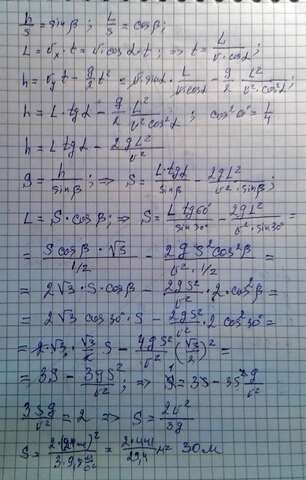 h/S = sinβ; L/S = cosβ;
L = vₓ·t = v cosα·t; ⇒ t = L/(v·cosα);
h = v_y t − (g/2)t² = v sinα · L/(v cosα) − (g/2) · L²/(v²·cos²α);
h = L·tgα − (g/2) · L²/(v² cos²α); cos²60° = 1/4
h = L tgα − 2gL²/v²
S = h/sinβ; ⇒ S = L·tgα/sinβ − 2gL²/(v²·sinβ);
L = S·cosβ; ⇒ S = L tg60°/sin30° − 2gL²/(v²·sin30°) =
= S cosβ·√3/(1/2) − 2g S² cos²β/(v²·1/2) =
= 2√3·S·cosβ − (2gS²/v²)·2·cos²β =
= 2√3 cos30°·S − (2gS²/v²)·2 cos²30° =
= 2·√3·(√3/2) S − (4gS²/v²)(√3/2)² =
= 3S − 3gS²/v²; ⇒ S = 3S − 3S² g/v²
3Sg/v² = 2 ⇒ S = 2v²/3g